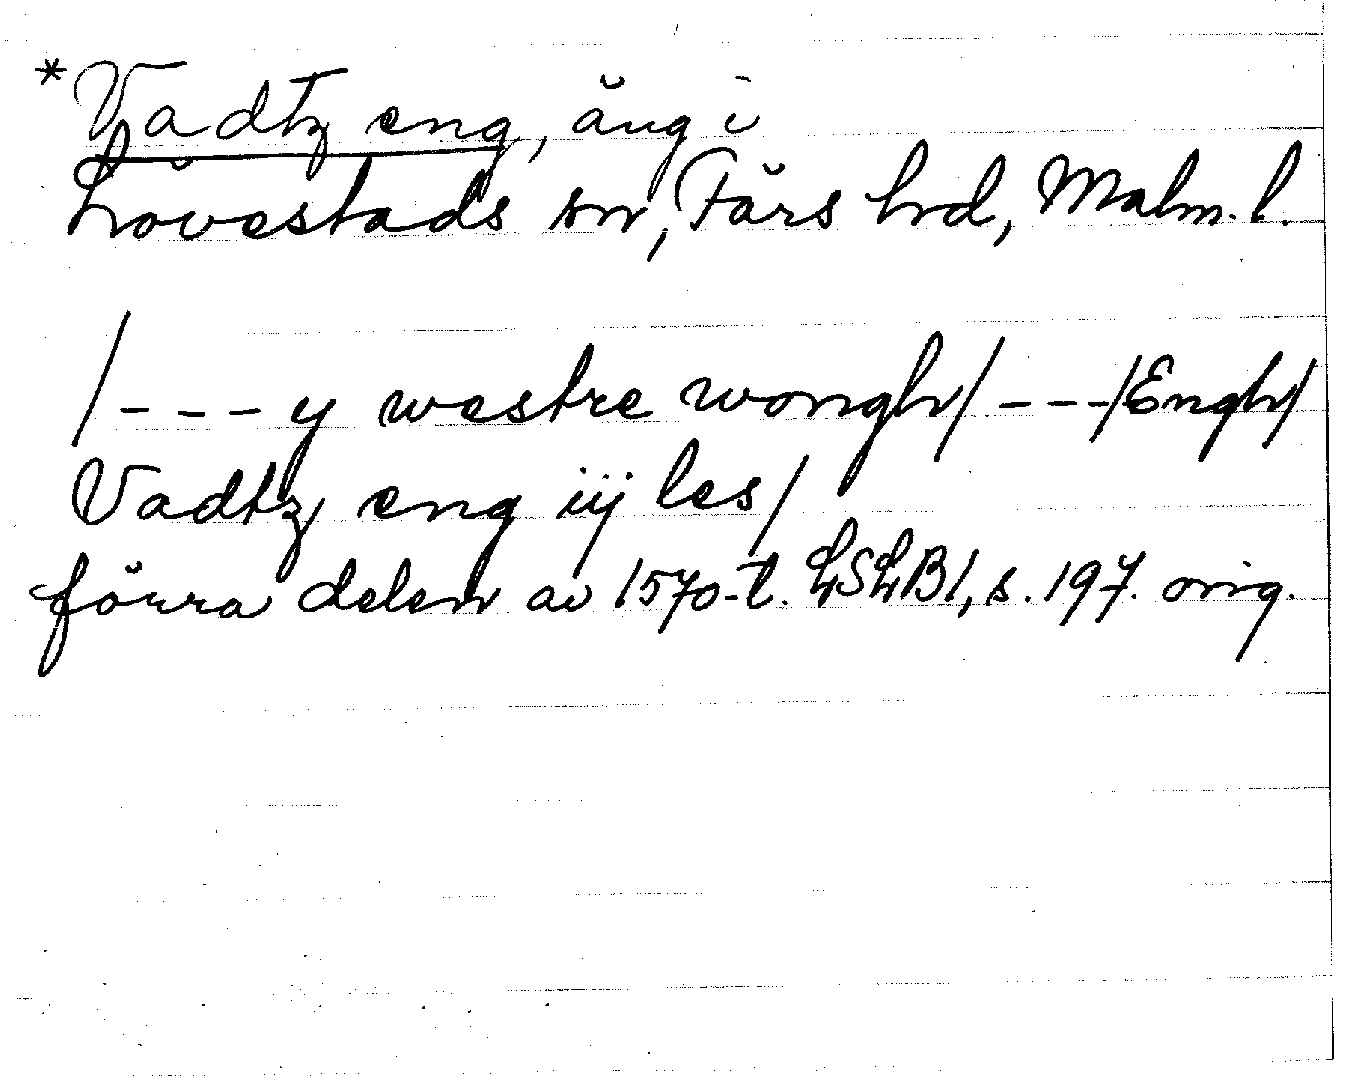 *Vadtz eng, äng i
Lövestads sn, Färs hd, Malm. l.
/--- y westre wongh/ ---/Engh/
Vadtz eng iij les/
förra delen av 1570-t. LSLB1, s. 197. orig.